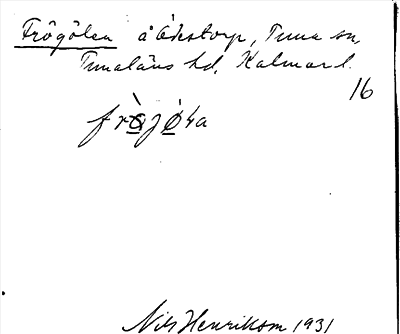 Frögölen å Åkestorp, Tuna sn,
Tunaläns hd, Kalmar l.
16
Nils Henrikson 1931